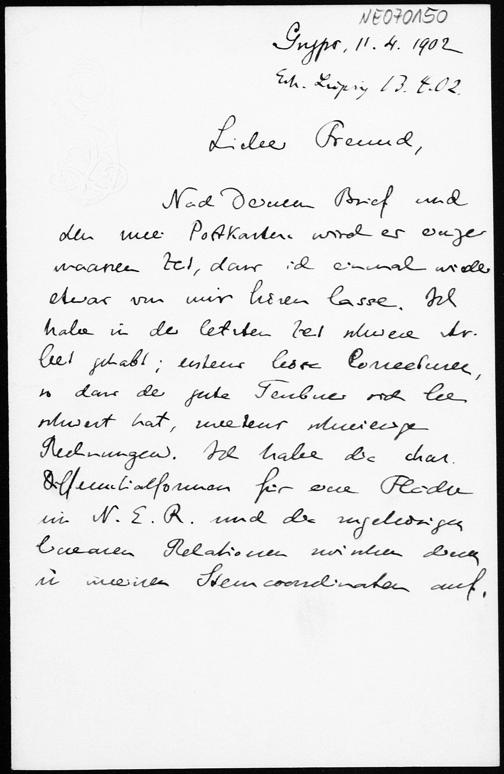 NE070150
Gryps, 11. 4. 1902
Erh. Leipzig 13.4.02.
Lieber Freund,
Nach Deinem Brief und
den zwei Postkarten wird es einiger
maassen Zeit, dass ich einmal wieder
etwas von mir hören lasse. Ich
habe in der letzten Zeit schwere Ar-
beit gehabt; erstens böse Correcturen,
so dass der gute Teubner sich be
schwert hat, zweitens schwierige
Rechnungen. Ich habe die char.
Differentialformen für eine Fläche
im N. E. R. und die zugehörigen
linearen Relationen zwischen denen
in meinen Sterncoordinaten auf.